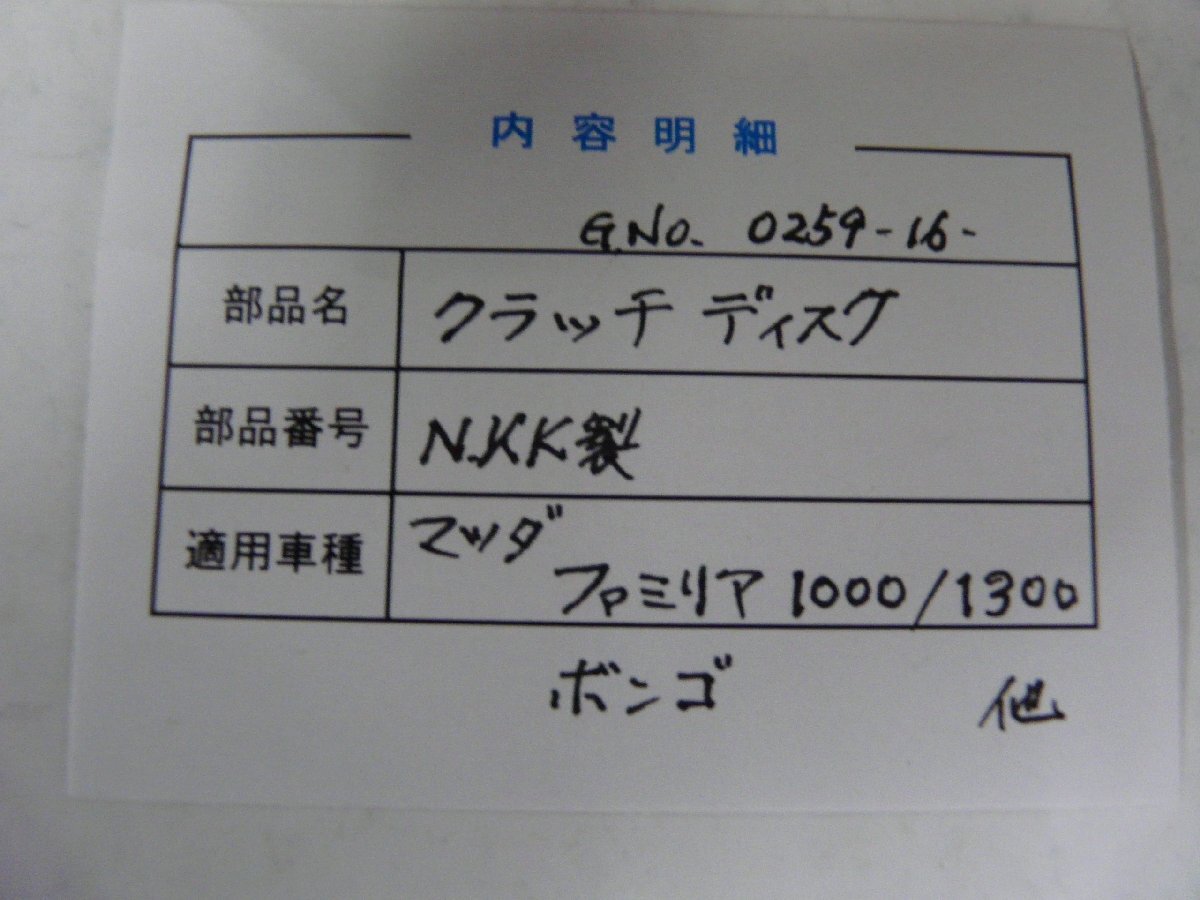 内容明細
G.No. 0259-16-
部品名 クラッチ ディスク
部品番号 N.KK製
適用車種 マツダ
ファミリア 1000/1300
ボンゴ 他